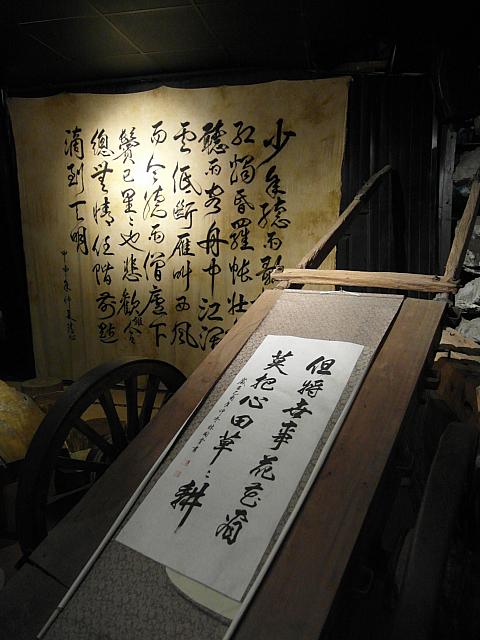 少年聽雨歌
紅燭昏羅帳壯
聽雨客舟中江闊
雲低斷雁叫西風
而今聽雨僧廬下
鬢已星々也悲歡離合
總無情任階前點
滴到天明
但將世事花花看
莫把心田草々耕